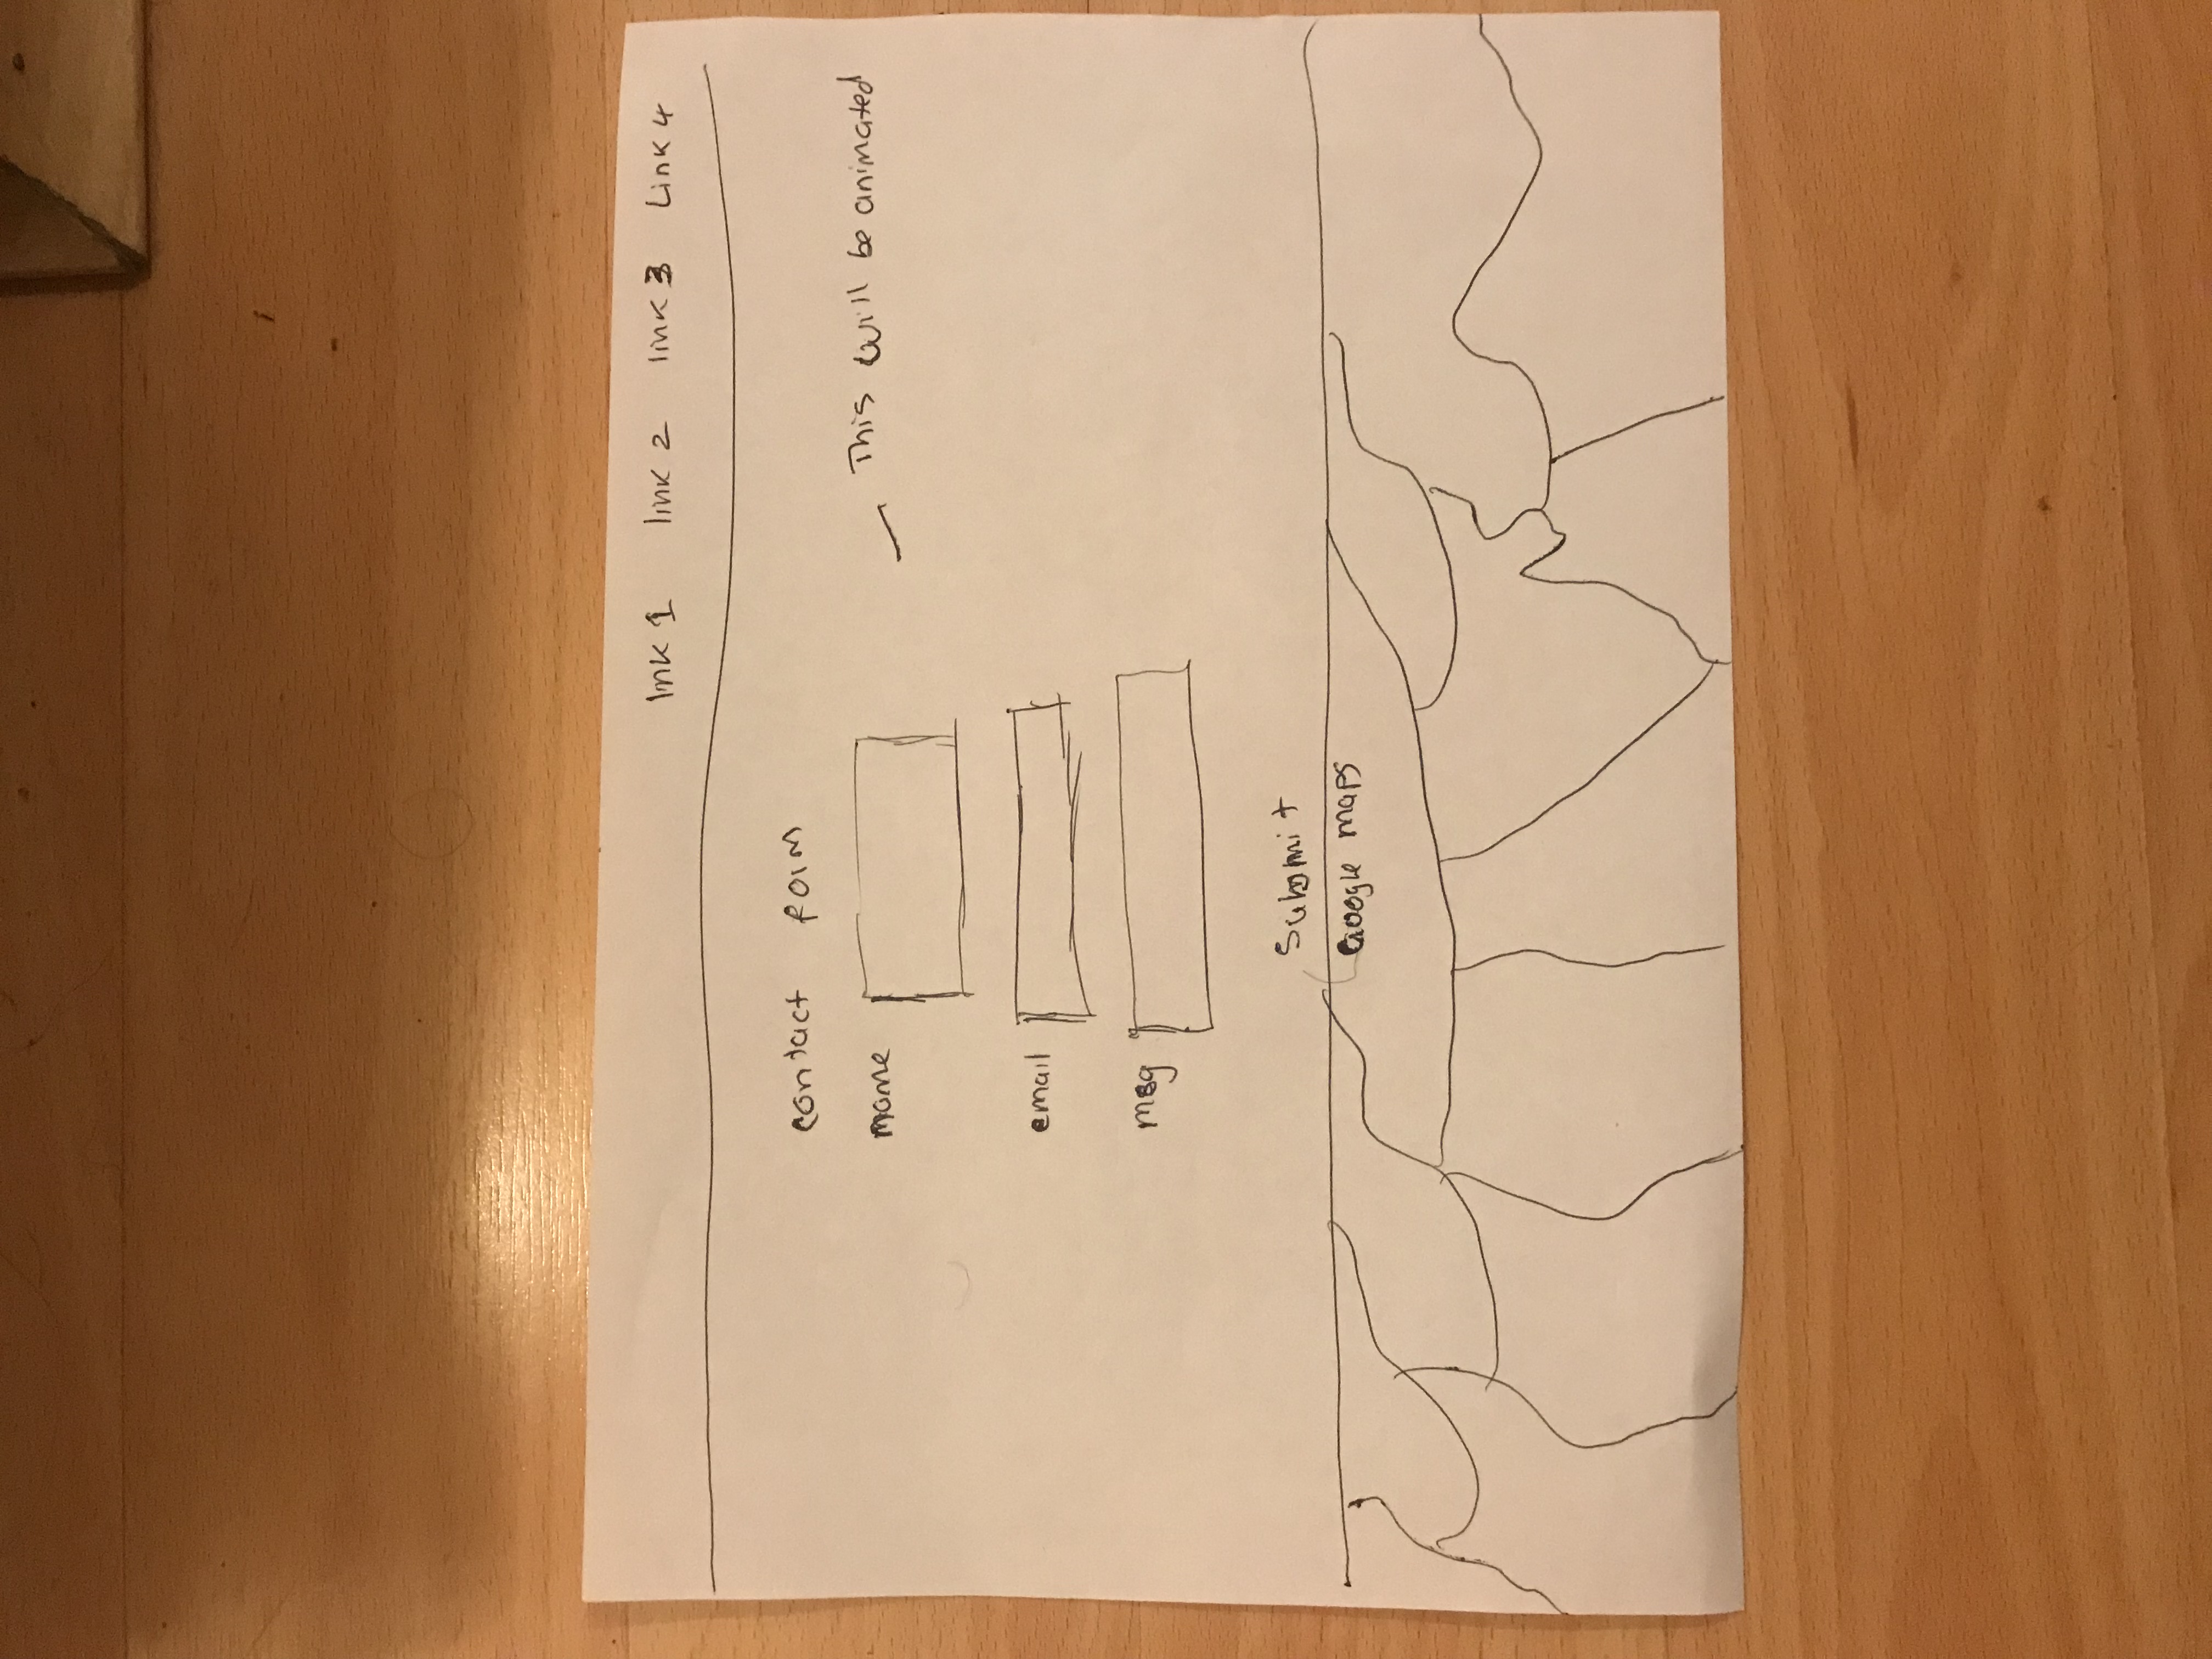 link 1 link 2 link 3 Link 4
contact form
name
This will be animated
email
msg
Submit
Google maps